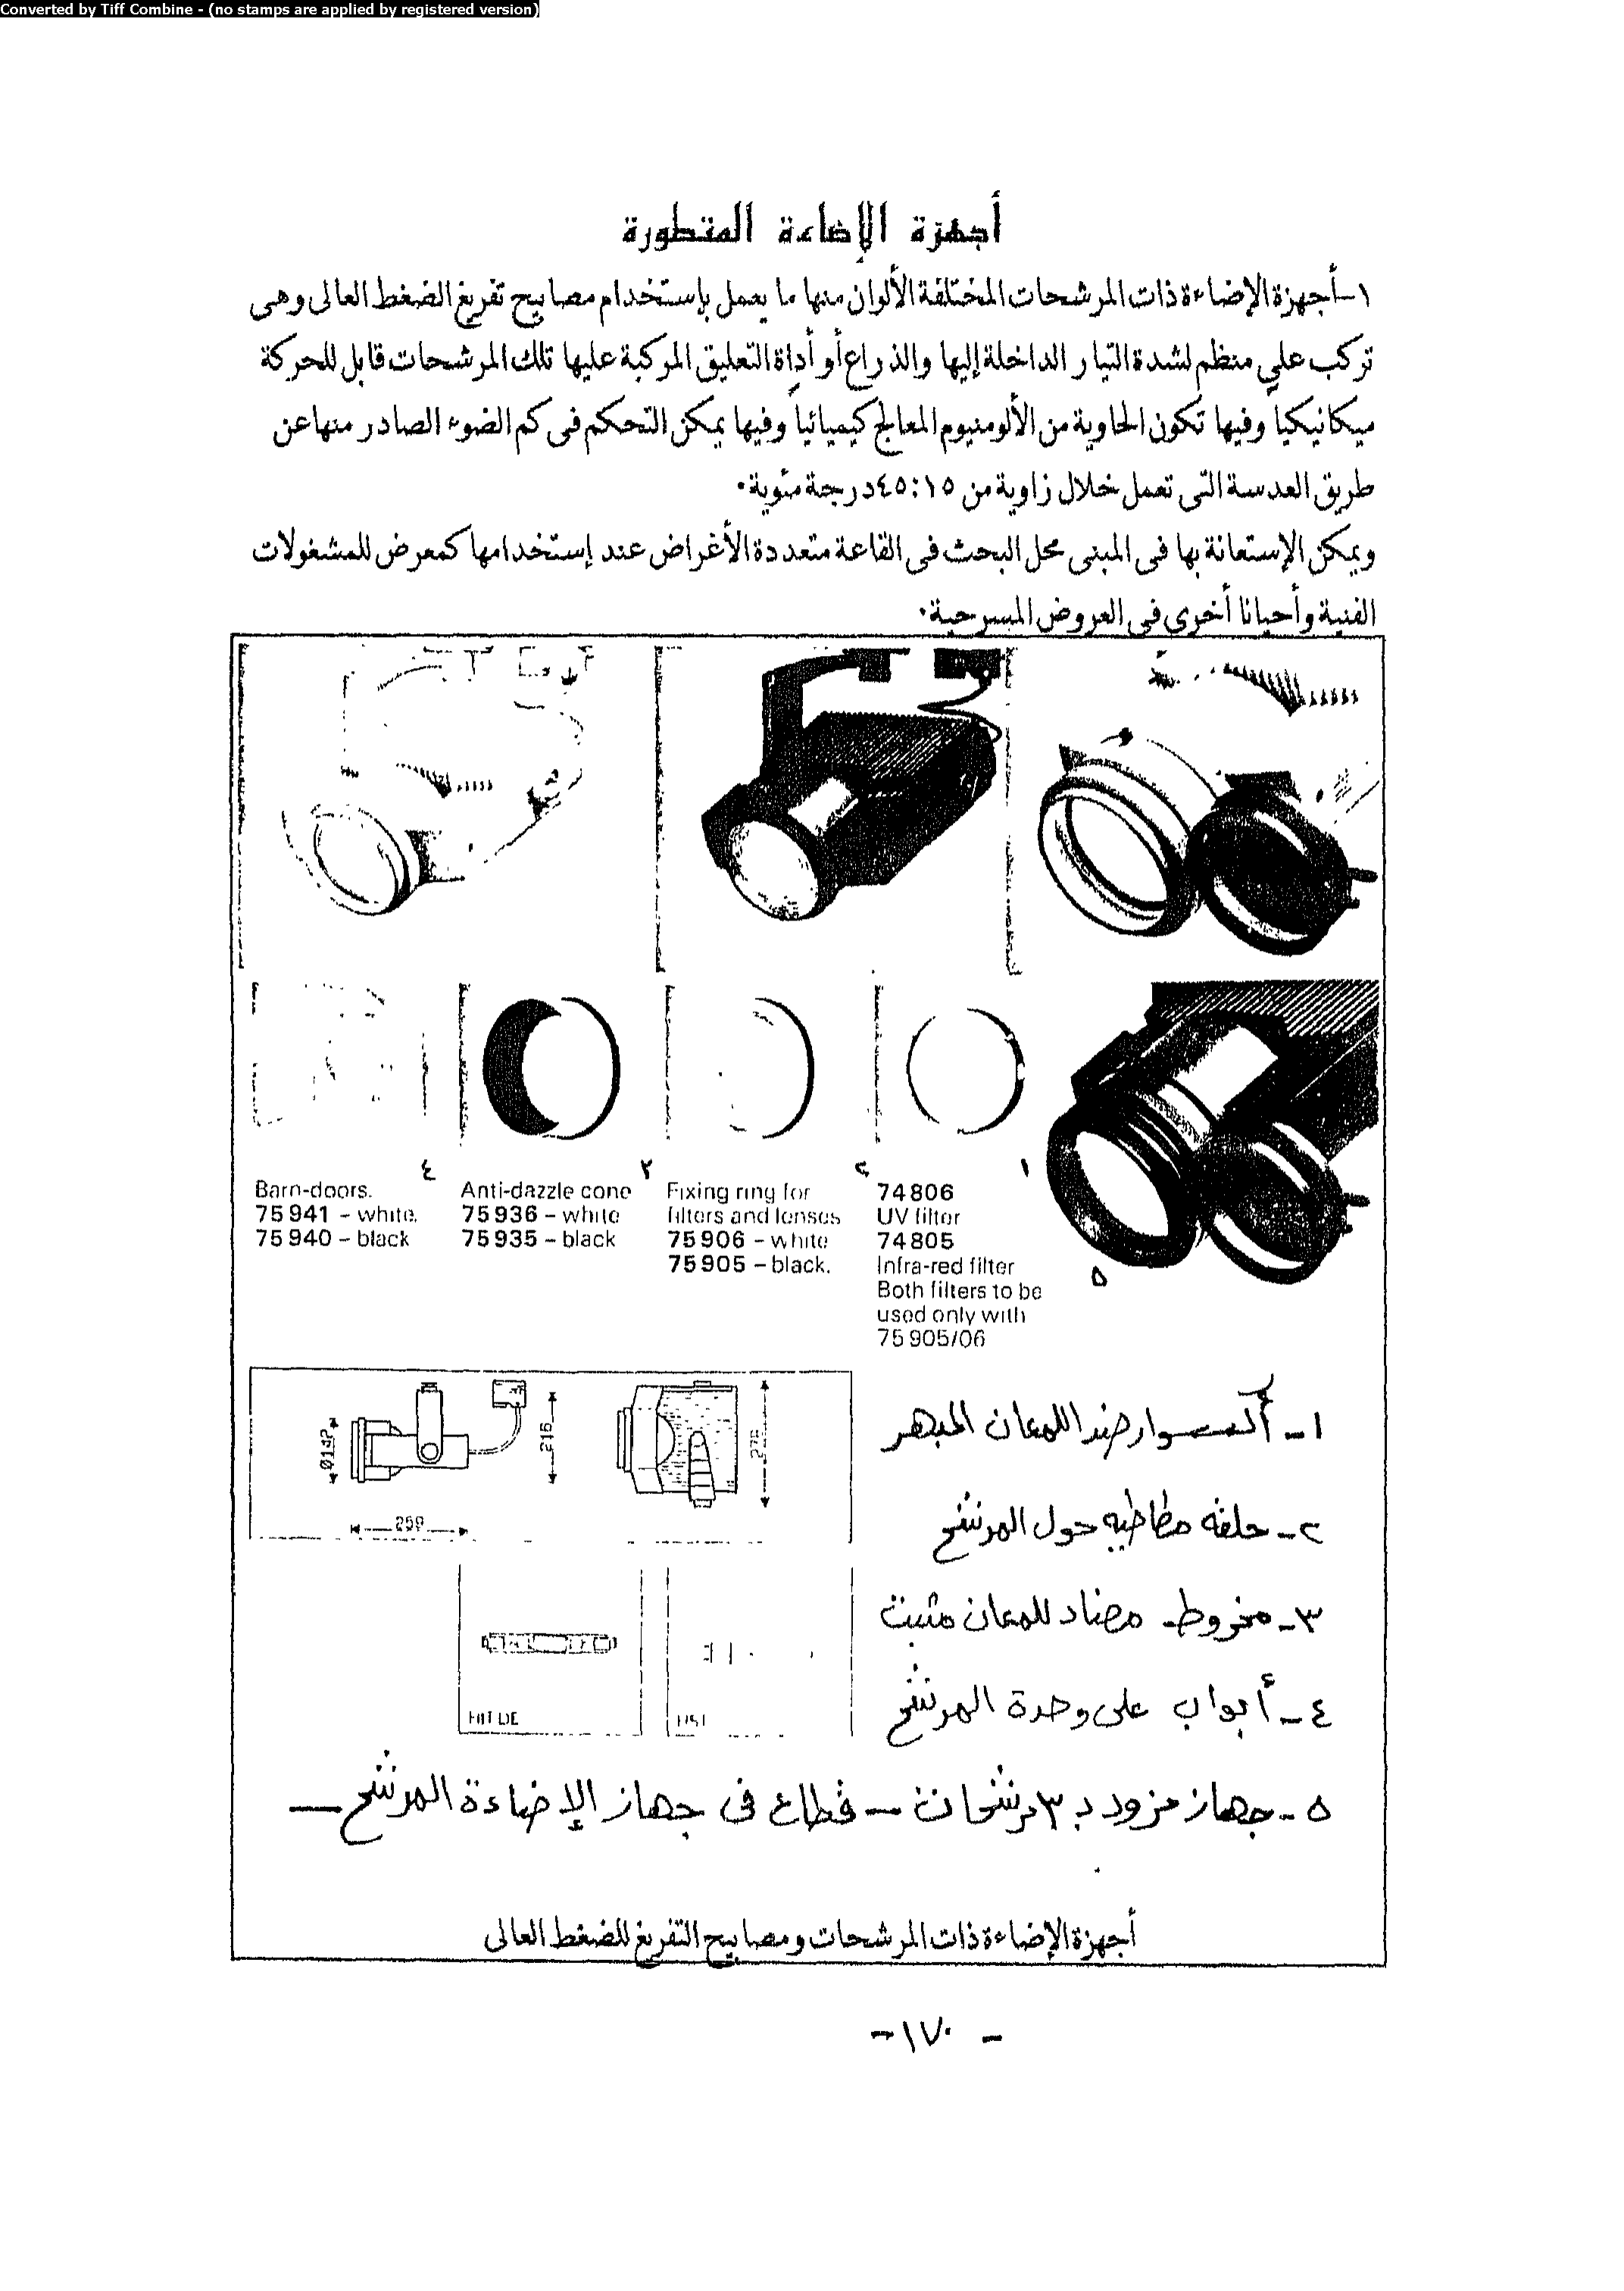 Converted by Tiff Combine - (no stamps are applied by registered version)
أجهزة الإضاءة المتطورة
١-أجهزة الإضاءة ذات المرشحات المختلفة الألوان منها ما يعمل بإستخدام مصابيح تفريغ الضغط العالى وهى
تركب على منظم لشدة التيار الداخلة إليها والذراع أو أداة التعليق المركبة عليها تلك المرشحات قابل للحركة
ميكانيكياً وفيها تكون الحاوية من الألومنيوم المعالج كيميائياً وفيها يمكن التحكم فى كم الضوء الصادر منها عن
طريق العدسة التى تعمل خلال زاوية من ٤٥:١٥ درجة مئوية.
ويمكن الإستعانة بها فى المبنى محل البحث فى القاعة متعددة الأغراض عند إستخدامها كمعرض للمشغولات
الفنية وأحيانا أخرى فى العروض المسرحية.
٤ ٣ ٢ ١
Barn-doors.
75941 - white.
75940 - black
Anti-dazzle cone
75936 - white
75935 - black
Fixing ring for
filters and lenses
75906 - white
75905 - black.
74806
UV filter
74805
Infra-red filter
Both filters to be
used only with
75905/06
٥
Ø142
216
259
١- أكسسوار ضد اللمعان المبهر
٢- حلقه مطاطيه حول المرشح
٣- مخروط مضاد للمعان مثبت
٤- أبواب على وحدة المرشح
٥- جهاز مزود بـ ٣ مرشحات - قطاع فى جهاز الإضاءة المرشح -
أجهزة الإضاءة ذات المرشحات ومصابيح التفريغ للضغط العالى
- ١٧٠ -